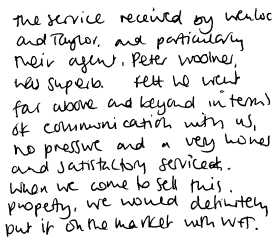 The service received by Wenloc
and Taylor, and particularly
their agent, Peter Woolner,
was superb. Felt he went
far above and beyond in terms
of communication with us,
no pressure and a very honest
and satisfactory service.
When we come to sell this
property, we would definitely
put it on the market with W+T.